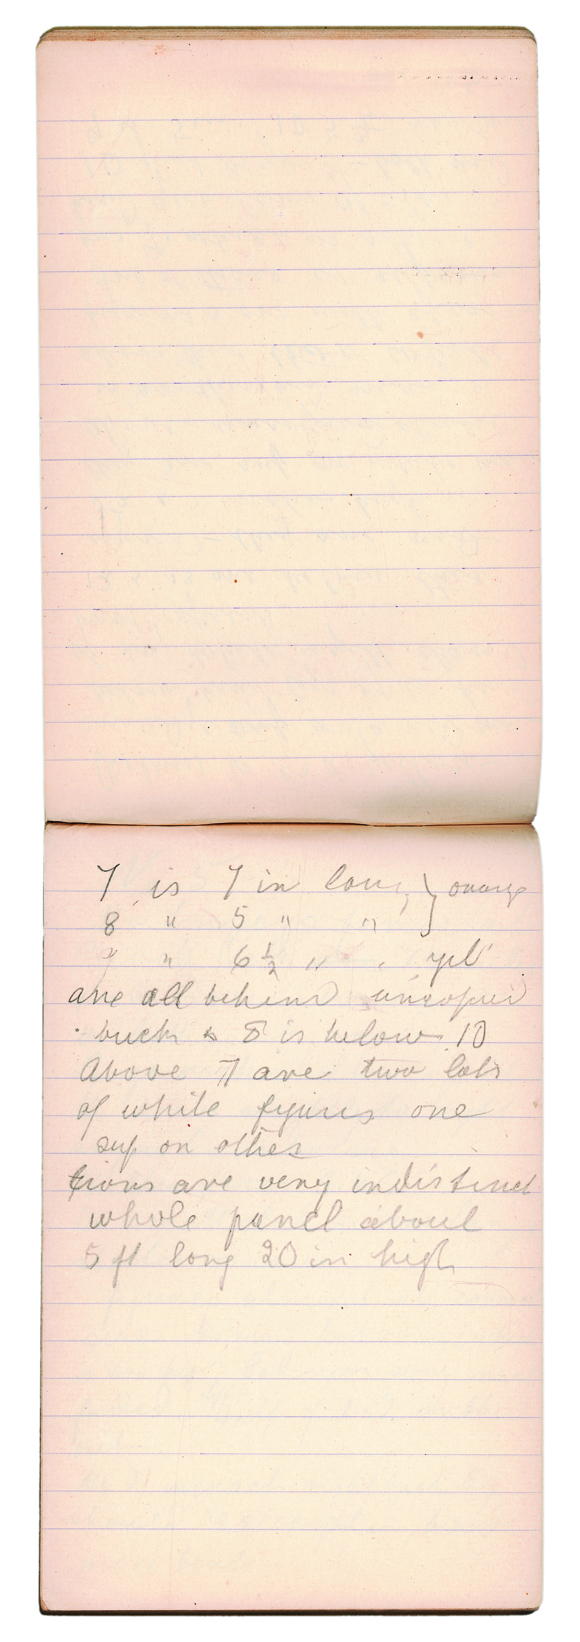 7 is 7 in long } orange
8 " 5 " "
9 " 6½ " " yel
are all behind
buck & 8 is below 10
Above 7 are two lots
of white figures one
sup on other
are very indistinct
whole panel about
5 ft long 20 in high